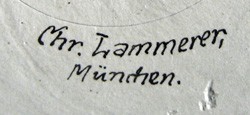 Chr. Lammerer,
München.